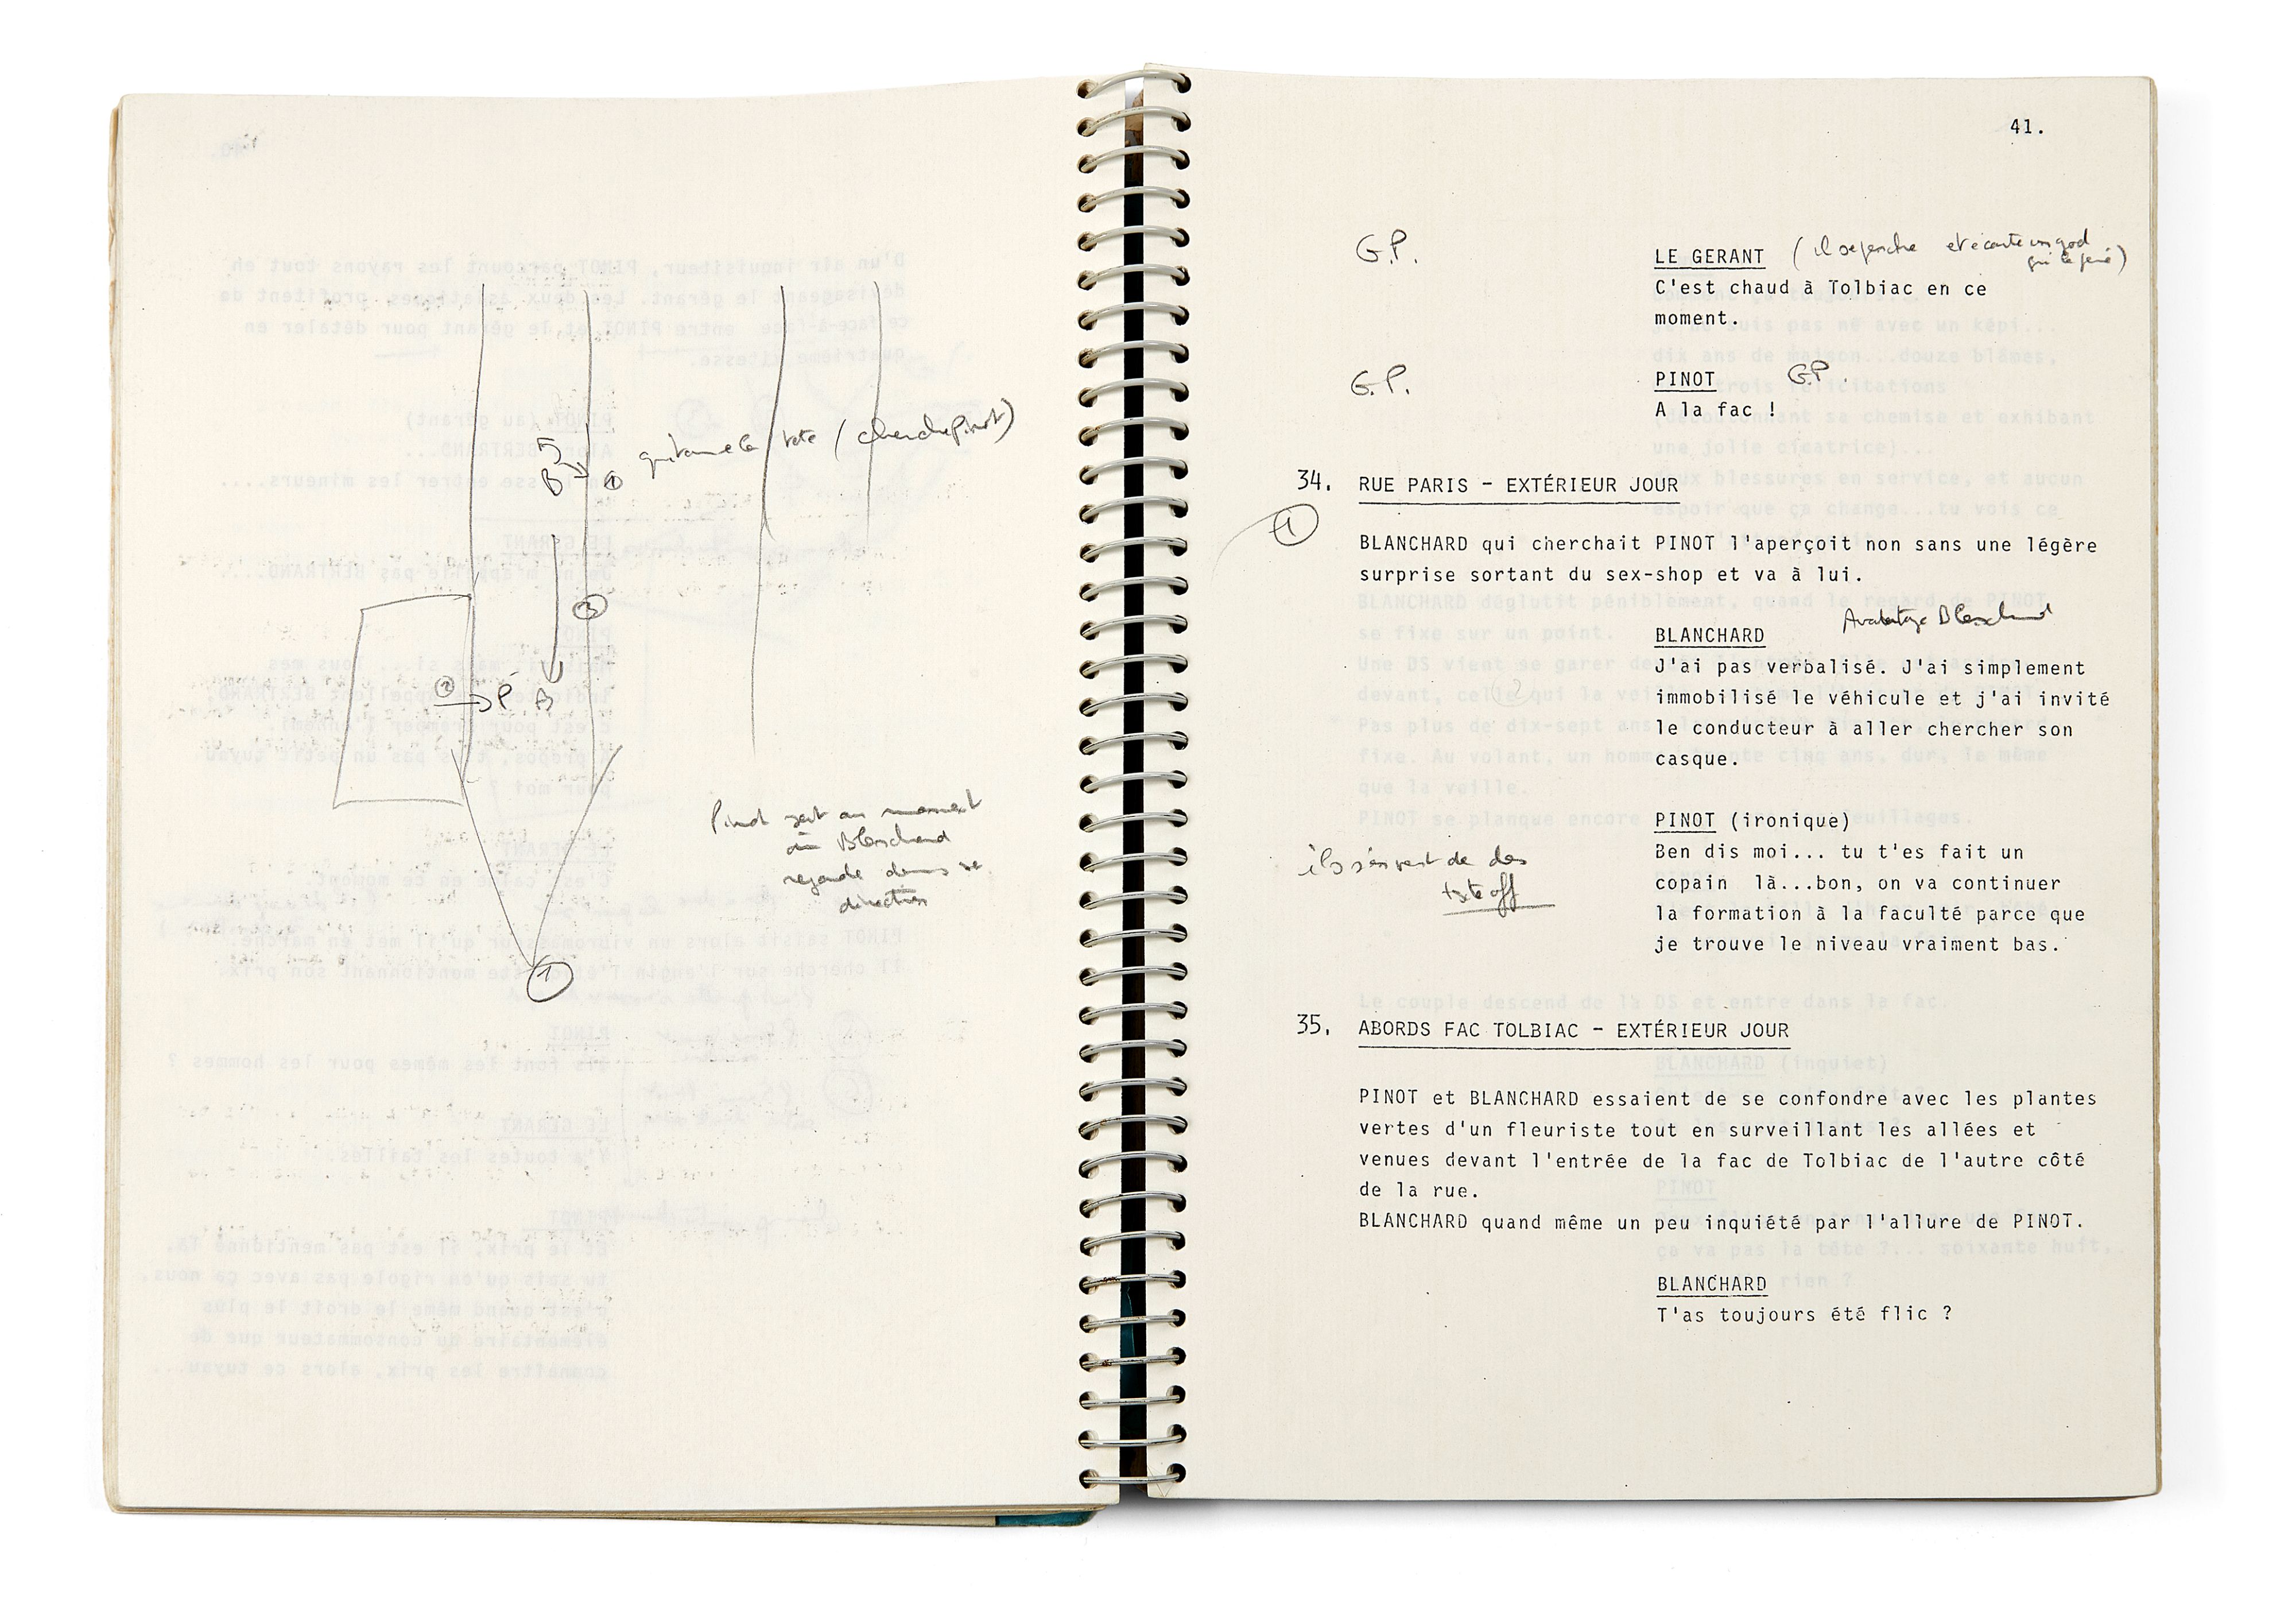 B
①
qui tourne la tête (cherche Pinot)
③
② P. B
Pinot sort au moment
où Blanchard
regarde dans sa
direction
①
41.
G.P.
LE GERANT (il se penche et écarte un god
qui le gêne)
C'est chaud à Tolbiac en ce
moment.
G.P.
PINOT G.P.
A la fac !
34. RUE PARIS - EXTÉRIEUR JOUR
①
BLANCHARD qui cherchait PINOT l'aperçoit non sans une légère
surprise sortant du sex-shop et va à lui.
Blanchard
BLANCHARD
J'ai pas verbalisé. J'ai simplement
immobilisé le véhicule et j'ai invité
le conducteur à aller chercher son
casque.
PINOT (ironique)
Ben dis moi... tu t'es fait un
copain là...bon, on va continuer
la formation à la faculté parce que
je trouve le niveau vraiment bas.
ils s'en vont de dos
texte off
35. ABORDS FAC TOLBIAC - EXTÉRIEUR JOUR
PINOT et BLANCHARD essaient de se confondre avec les plantes
vertes d'un fleuriste tout en surveillant les allées et
venues devant l'entrée de la fac de Tolbiac de l'autre côté
de la rue.
BLANCHARD quand même un peu inquiété par l'allure de PINOT.
BLANCHARD
T'as toujours été flic ?